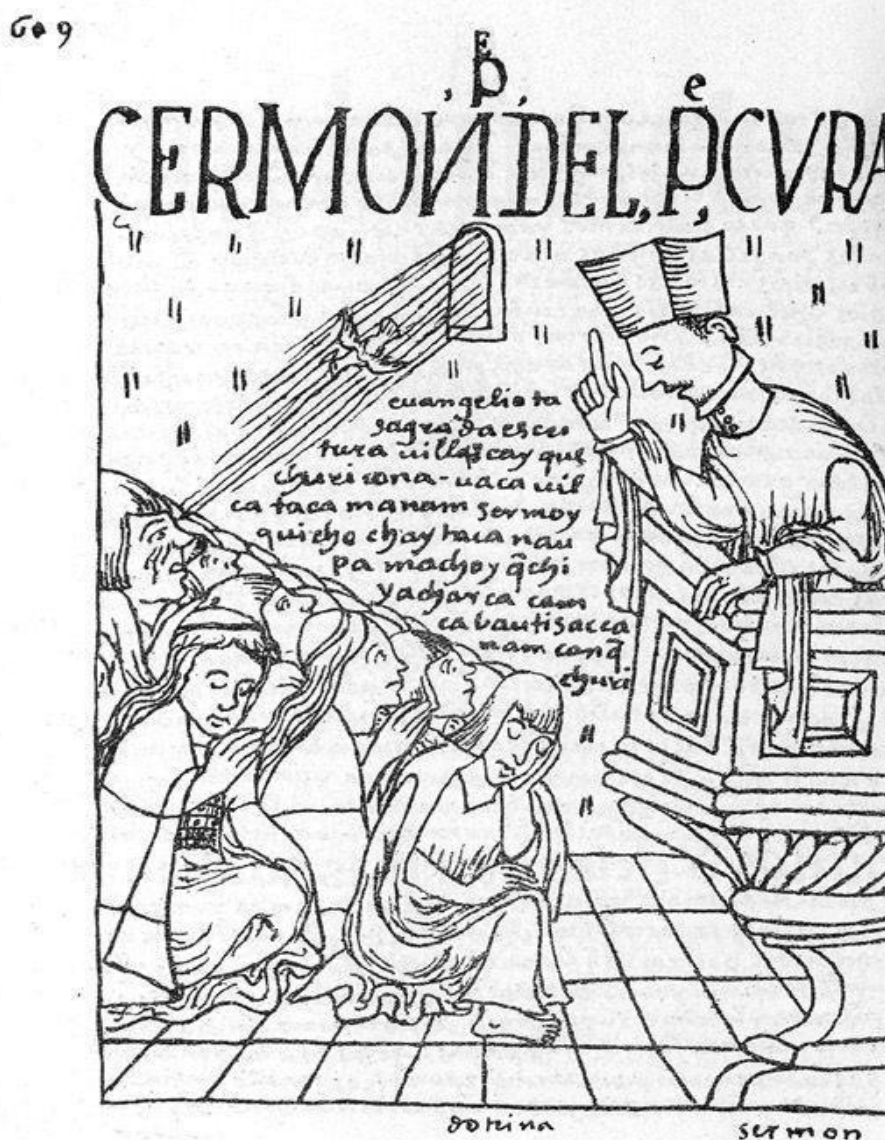 609
P.E
CERMON DEL, P.e, CVRA
euangeliota
sagrada escri
tura uillascayque
churicona - uaca uil
cataca manam sermoy
quicho chaytaca ñau
pa machoyq̃chi
yacharca cam
ca bautisacca
nam conq̃
churi
dotrina
sermon